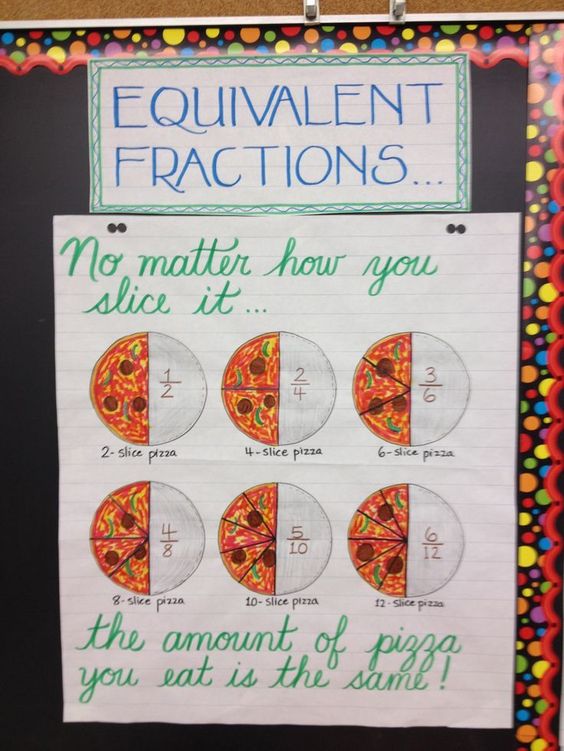 EQUIVALENT
FRACTIONS...
No matter how you
slice it...
1/2
2/4
3/6
2-slice pizza
4-slice pizza
6-slice pizza
4/8
5/10
6/12
8-slice pizza
10-slice pizza
12-slice pizza
the amount of pizza
you eat is the same!